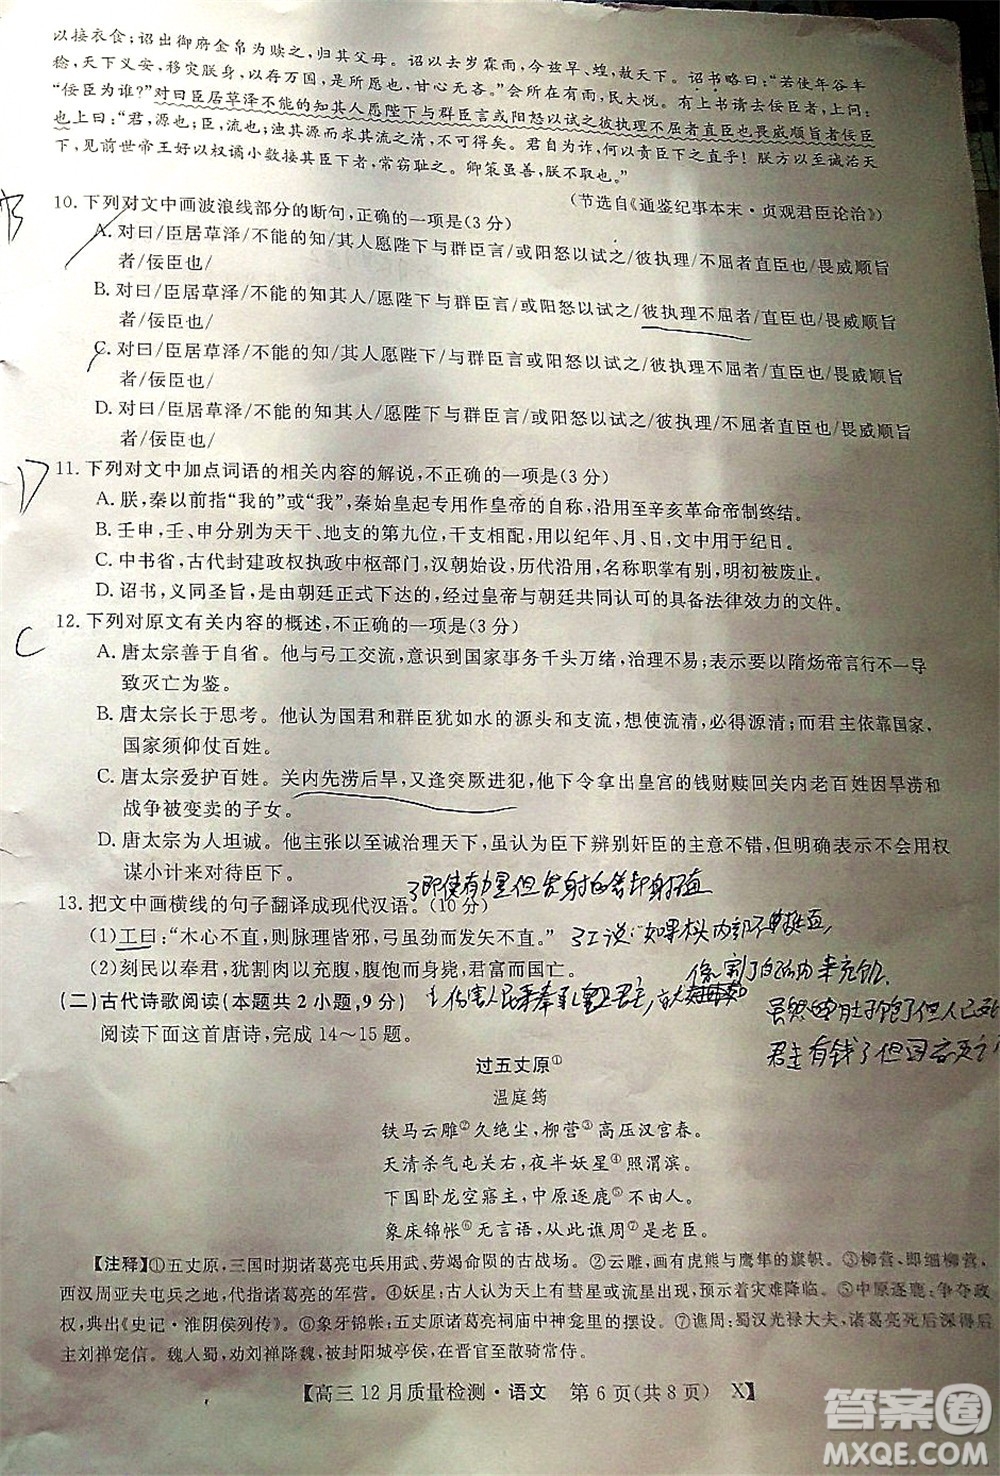 以接衣食；诏出御府金帛为赎之，归其父母。诏以去岁霖雨，今兹旱、蝗，赦天下。诏书略曰：“若使年谷丰
稔，天下乂安，移灾朕身，以存万国，是所愿也，甘心无吝。”会所在有雨，民大悦。有上书请去佞臣者，上问：
“佞臣为谁？”对曰臣居草泽不能的知其人愿陛下与群臣言或阳怒以试之彼执理不屈者直臣也畏威顺旨者佞臣
也上曰：“君，源也；臣，流也；浊其源而求其流之清，不可得矣。君自为诈，何以责臣下之直乎！朕方以至诚治天
下，见前世帝王好以权谲小数接其臣下者，常窃耻之。卿策虽善，朕不取也。”
（节选自《通鉴纪事本末·贞观君臣论治》）
10. 下列对文中画波浪线部分的断句，正确的一项是（3 分）
A. 对曰/臣居草泽/不能的知/其人愿陛下与群臣言/或阳怒以试之/彼执理/不屈者直臣也/畏威顺旨
者/佞臣也/
B. 对曰/臣居草泽/不能的知其人/愿陛下与群臣言/或阳怒以试之/彼执理不屈者/直臣也/畏威顺旨
者/佞臣也/
C. 对曰/臣居草泽/不能的知/其人愿陛下/与群臣言/或阳怒以试之/彼执理不屈者/直臣也/畏威顺旨
者/佞臣也/
D. 对曰/臣居草泽/不能的知其人/愿陛下/与群臣言/或阳怒以试之/彼执理/不屈者直臣也/畏威顺旨
者/佞臣也/
D
11. 下列对文中加点词语的相关内容的解说，不正确的一项是（3 分）
A. 朕，秦以前指“我的”或“我”，秦始皇起专用作皇帝的自称，沿用至辛亥革命帝制终结。
B. 壬申，壬、申分别为天干、地支的第九位，干支相配，用以纪年、月、日，文中用于纪日。
C. 中书省，古代封建政权执政中枢部门，汉朝始设，历代沿用，名称职掌有异，明初被废止。
D. 诏书，义同圣旨，是由朝廷正式下达的，经皇帝与朝廷共同认可的具备法律效力的文件。
C
12. 下列对原文有关内容的概述，不正确的一项是（3 分）
A. 唐太宗善于自省。他与弓工交流，意识到国家事务千头万绪，治理不易；表示要以隋炀帝言行不一
致灭亡为鉴。
B. 唐太宗长于思考。他认为国君和群臣犹如水的源头和支流，想使流清，必得源清；而君主依靠国家，
国家须仰仗百姓。
C. 唐太宗爱护百姓。关内先涝后旱，又逢突厥进犯，他下令拿出皇宫的钱财赎回关内老百姓因天灾和
战争被变卖的子女。
D. 唐太宗为人坦诚。他主张以至诚治理天下，虽为臣下辨别奸臣的主意不错，但明确表示不会用权
谋小计来对待臣下。
13. 把文中画横线的句子翻译成现代汉语。（10 分）
（1）工曰：“木心不直，则脉理皆邪，弓虽劲而发矢不直。”
（2）刻民以奉君，犹割肉以充腹，腹饱而身毙，君富而国亡。
（二）古代诗歌阅读（本题共 2 小题，9 分）
阅读下面这首唐诗，完成 14～15 题。
过五丈原①
温庭筠
铁马云雕②久绝尘，柳营③高压汉宫春。
天清杀气屯关右，夜半妖星④照渭滨。
下国卧龙空寤主，中原逐鹿⑤不由人。
象床锦帐⑥无言语，从此谯周⑦是老臣。
【注释】①五丈原，三国时期诸葛亮屯兵用武、劳竭命陨的古战场。②云雕，画有虎熊与鹰隼的旗帜。③柳营，即细柳营，
西汉周亚夫屯兵之地，代指诸葛亮的军营。④妖星：古人认为天上若有彗星或流星出现，预示着灾难降临。⑤中原逐鹿：争夺政
权，典出《史记·淮阴侯列传》。⑥象牙锦帐：五丈原诸葛亮祠庙中神龛里的摆设。⑦谯周：蜀汉光禄大夫，诸葛亮死后深得后
主刘禅宠信。魏人蜀，劝刘禅降魏，被封阳城亭侯，在晋官至散骑常侍。
【高三 12 月质量检测·语文 第 6 页（共 8 页） X】
答案圈
MXQE.COM